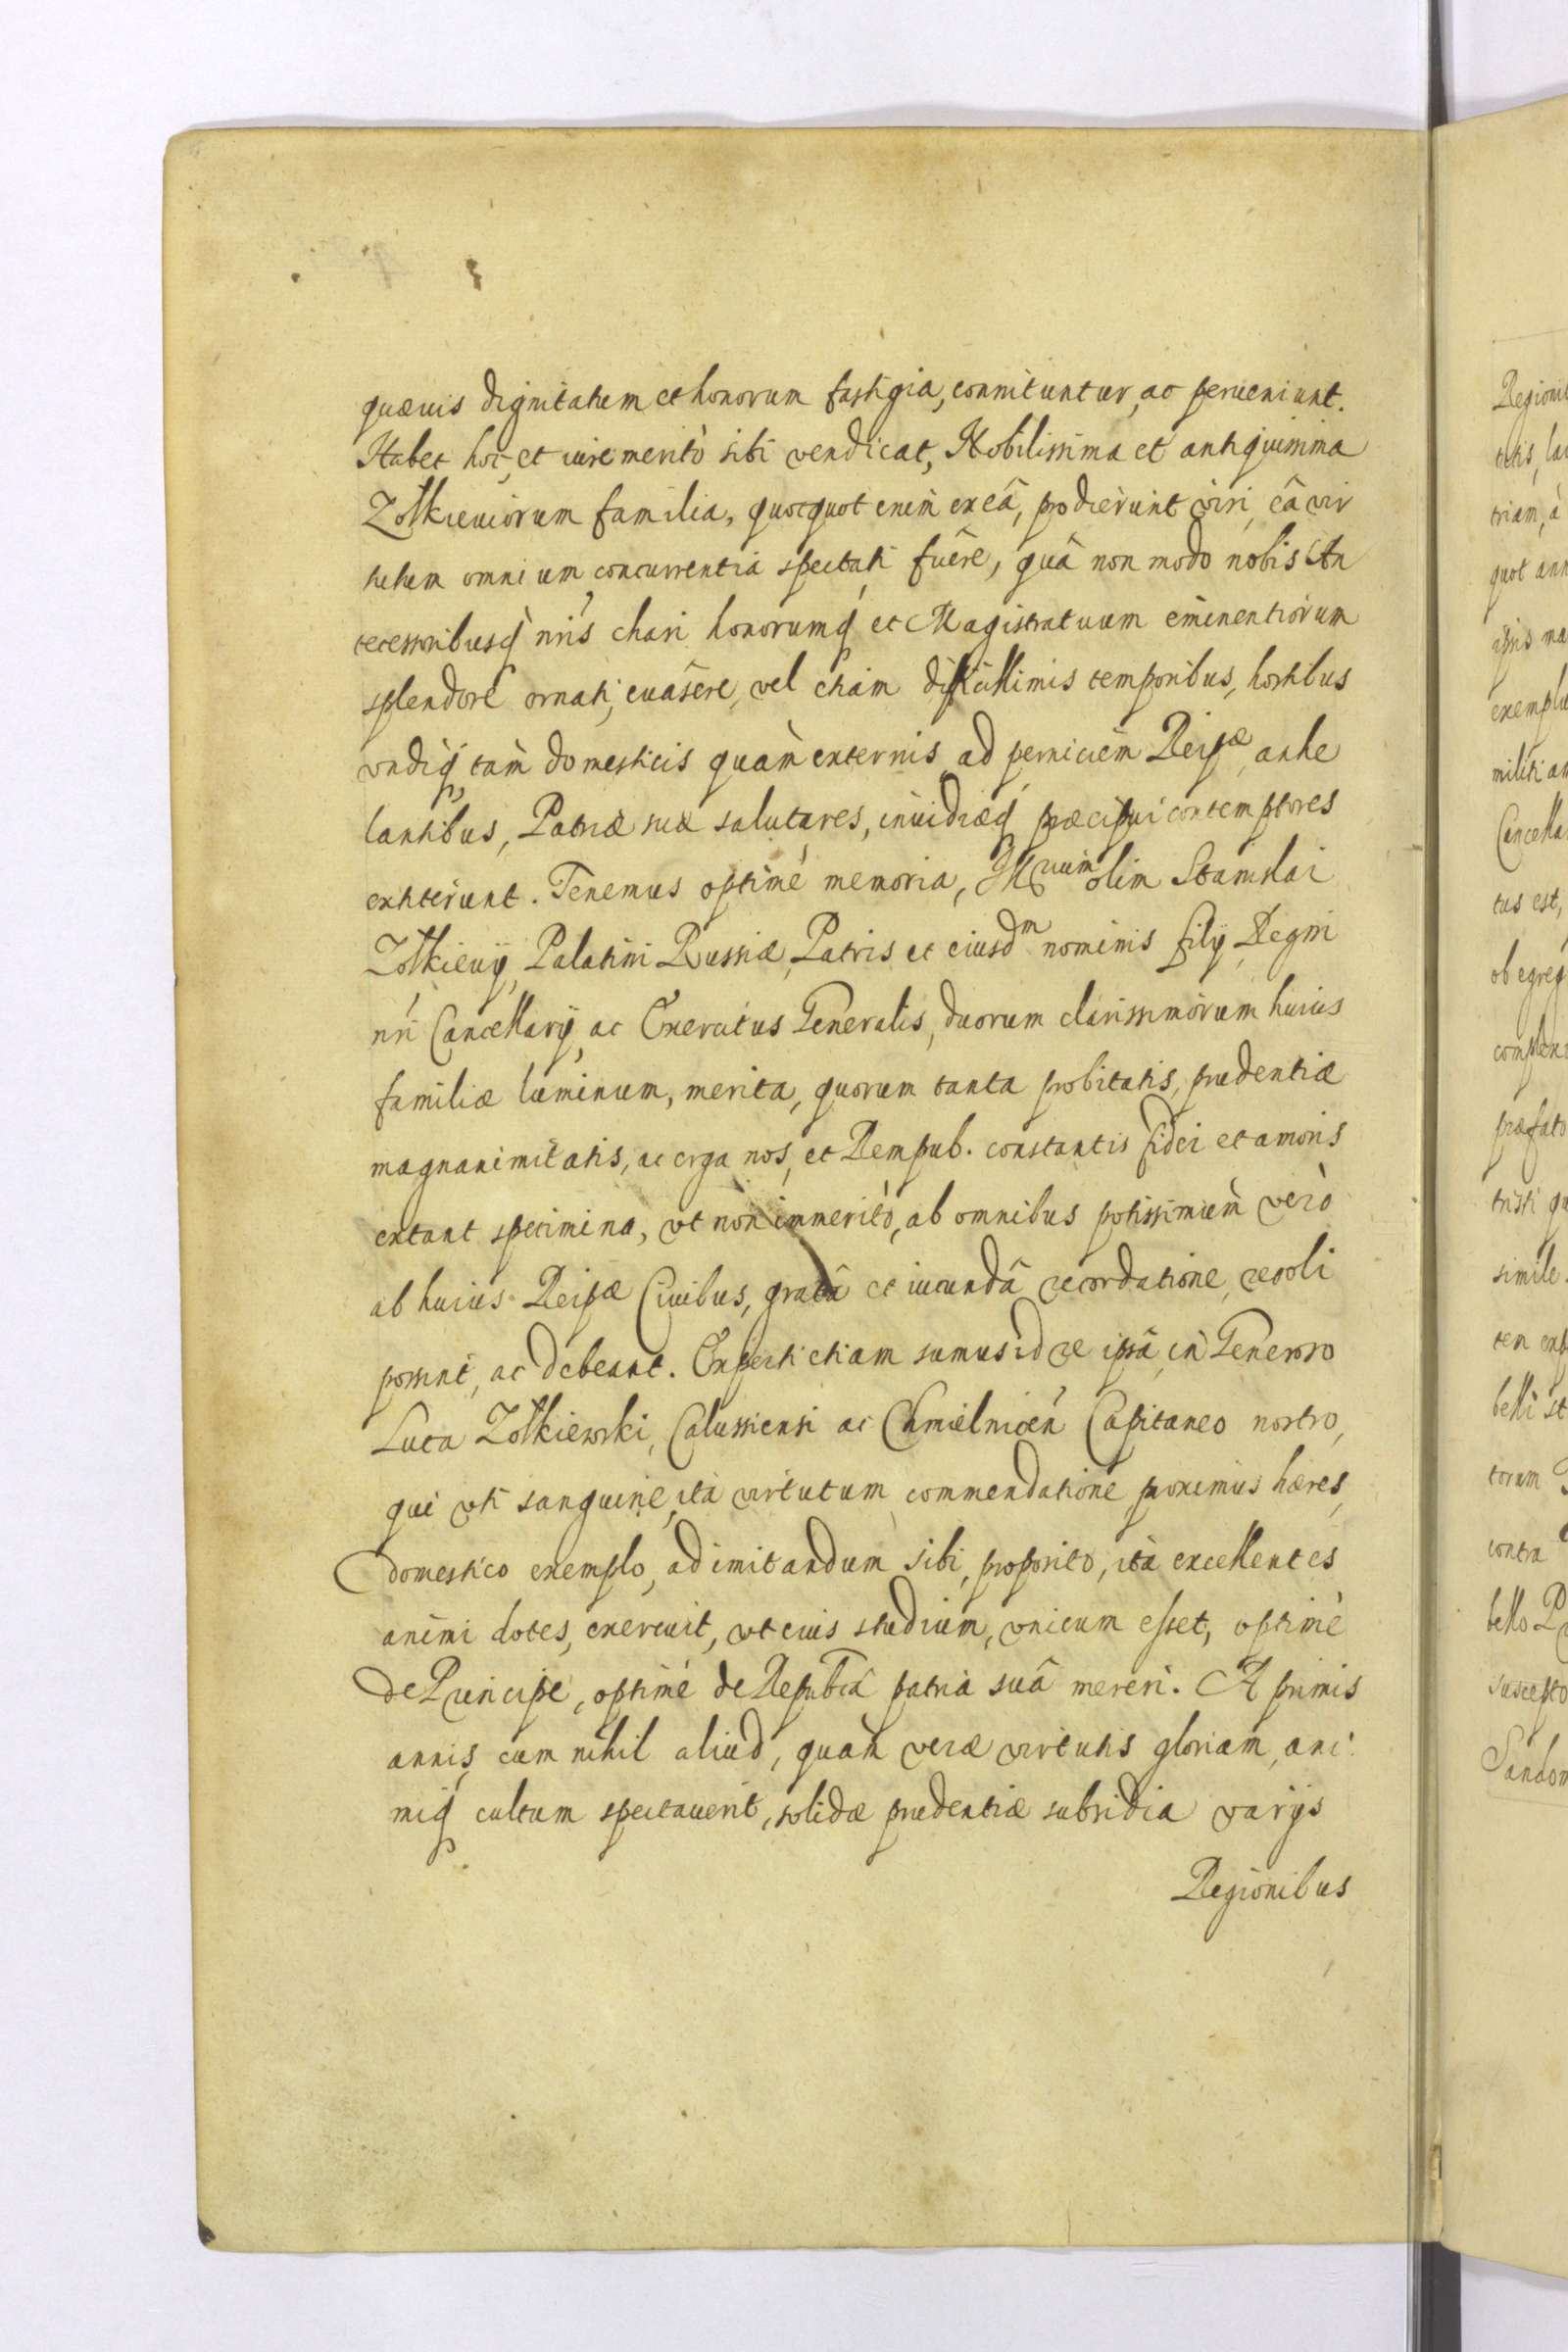 quæuis dignitatum et honorum fastigia, connituntur, ac perueniunt.
Habet hoc, et iure meritò sibi vendicat, Nobilissima et antiquissima
Zolkieuiorum familia, quotquot enim ex eâ, prodierunt viri, eâ vir
tutum omnium concurrentia spectati fuêre, quâ non modo nobis An
tecessoribusq́ nrís chari honorumq́ et Magistratuum eminentiorum
splendore ornati, euasêre, vel etiam difficillimis temporibus, hostibus
vndiq́, tàm domesticis quàm externis ad perniciem Reipæ, anhe
lantibus, Patriæ suæ salutares, inuidiæq́ præcipui contemptores
extiterunt. Tenemus optimè memoria, Illruum olim Stanislai
Zolkieuij, Palatini Russiæ, Patris et eiusdm nominis filij, Regni
nrí Cancellarij, ac Exercitus Generalis, duorum clarissimorum huius
familiæ luminum, merita, quorum tanta probitatis, prudentiæ
magnanimitatis, ac erga nos, et Rempub. constantis fidei et amoris
extant specimina, vt non immeritò, ab omnibus potissimùm verò
ab huius Reipæ Ciuibus, gratâ et iucundâ recordatione, recoli
possint, ac debeant. Experti etiam sumus id re ipsâ, in Generoso
Luca Zolkiewski, Calussiensi ac Chmielnicen̄ Capitaneo nostro,
qui vti sanguine, ità virtutum commendatione proximus hæres,
domestico exemplo, ad imitandum sibi, proposito, ità excellentes
animi dotes, exercuit, vt eius studium, vnicum esset, optimè
de Principe, optimè de Repub̄ca patria suâ mereri. A primis
annis, cum nihil aliud, quàm veræ virtutis gloriam, ani:
miq́ cultum spectauerit, solidæ prudentiæ subsidia varijs
Regionibus